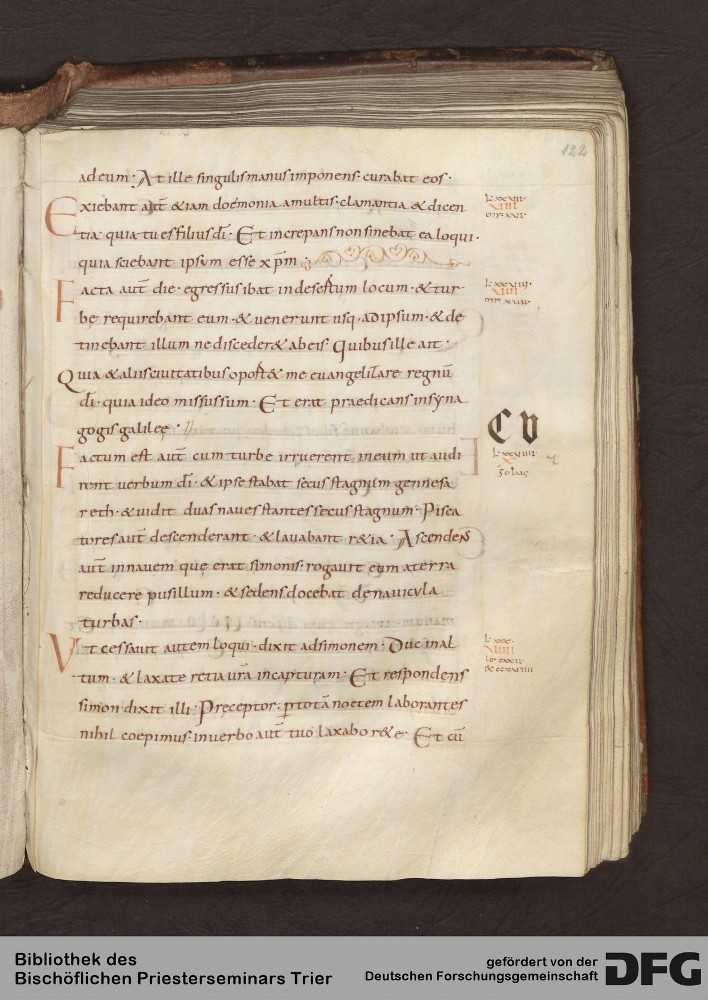 122
ad eum · At ille singulis manus imponens · curabat eos ·
Exiebant aut̄ & iam doemonia a multis · clamantia & dicen
tia · quia tu es filius dī · Et increpans non sinebat ea loqui ·
quia sciebant ipsum esse xp̄m ·
Facta aut̄ die · egressus ibat in desertum locum · & tur
bę requirebant eum · & uenerunt usq · ad ipsum · & de
tinebant illum ne disceder& ab eis · Quibus ille ait ·
Quia & aliis ciuitatibus oport& me euangelizare regnū
dī · quia ideo missus sum · Et erat praedicans in syna
gogis galileę ·
Factum est aut̄ cum turbe irruerent in eum ut audi
rent uerbum dī · & ipse stabat secus stagnum gennesa
reth · & uidit duas naues stantes secus stagnum · Pisca
tores aut̄ descenderant · & lauabant r&ia · Ascendens
aut̄ in nauem quę erat simonis · rogauit eum a terra
reducere pusillum · & sedens docebat de nauicula
turbas ·
Vt cessauit autem loqui · dixit ad simonem · Duc in al
tum · & laxate retia ur̄a in capturam · Et respondens
simon dixit illi · Pręceptor · p̱ totā noctem laborantes
nihil coepimus · in uerbo aut̄ tuo laxabo r&e · Et cū
CV
Bibliothek des
Bischöflichen Priesterseminars Trier
gefördert von der
Deutschen Forschungsgemeinschaft
DFG